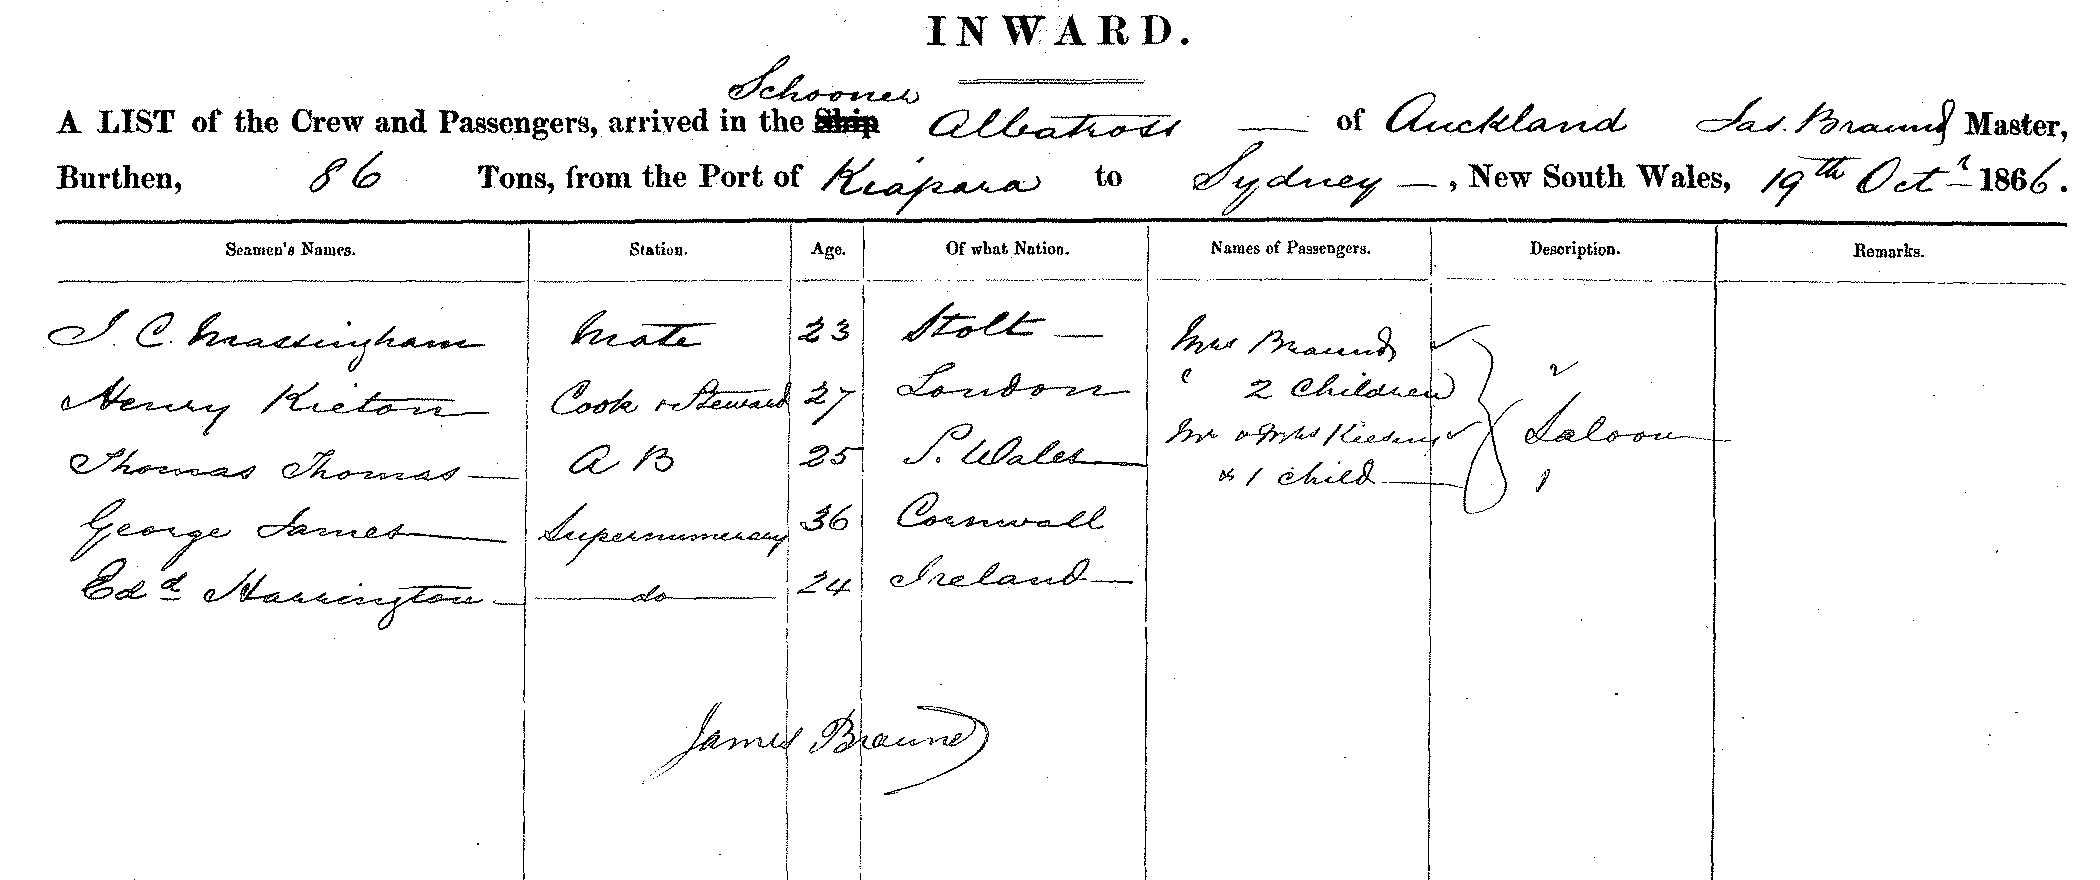 INWARD.
Schooner
A LIST of the Crew and Passengers, arrived in the Ship Albatross — of Auckland Jas. Braund Master,
Burthen, 86 Tons, from the Port of Kiapara to Sydney —, New South Wales, 19th Octr 1866.
Seamen's Names. Station. Age. Of what Nation. Names of Passengers. Description. Remarks.
J. C. Massingham Mate 23 — Mrs Braund
Henry Kieton Cook & Steward 27 London " 2 Children
Thomas Thomas — A B 25 S. Wales — Mr & Mrs Saloon
George James — Supernumerary 36 Cornwall & 1 child — "
Edd Harrington — do — 24 Ireland —
James Braund